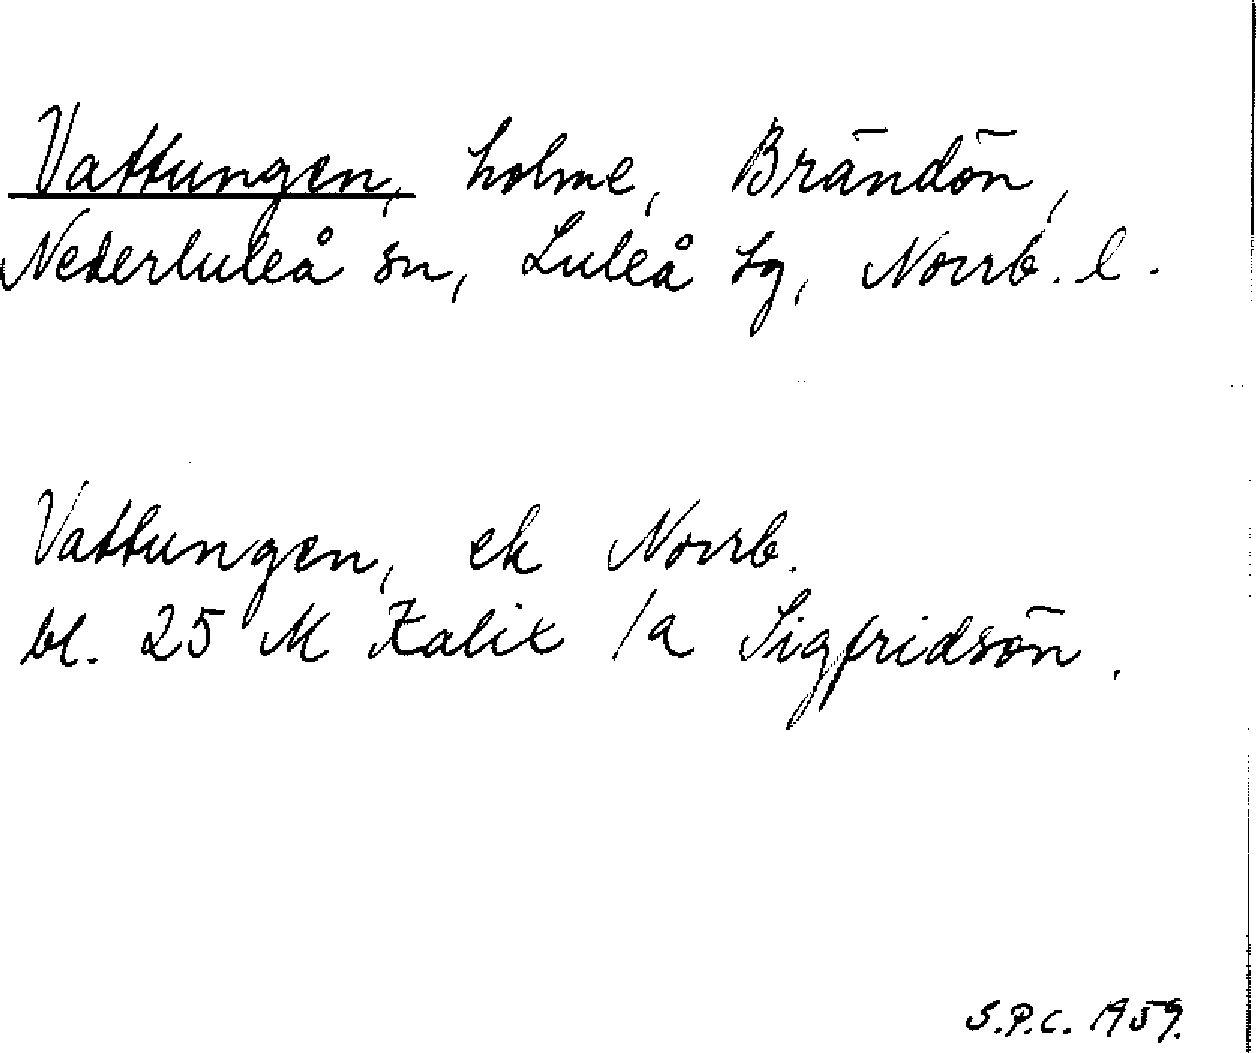 Vattungen, holme, Brändön,
Nederluleå sn, Luleå tg, Norrb. l.
Vattungen, ek Norrb.
bl. 25 M Kalix /a Sigfridsön.
S.P.C. 1959.